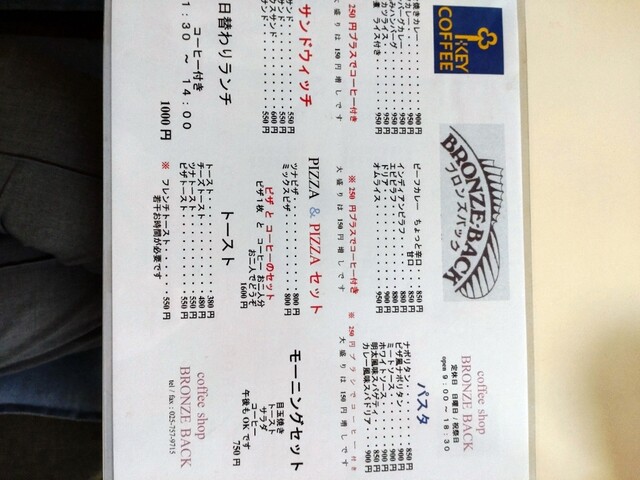 KEY
COFFEE
BRONZE-BACK
ブロンズバック
coffee shop
BRONZE BACK
定休日 日曜日/祝祭日
open 9:00〜18:30
焼きカレー・・・900円
カレー・・・950円
バーグカレー・・・950円
カツカレー・・・950円
ハンバーグ・・・950円
ライス付き・・・950円
250円プラスでコーヒー付き
大盛りは150円増しです
ビーフカレー ちょっと辛口・・850円
甘口・・850円
インディアンピラフ・・・880円
エビピラフ・・・880円
ドリア・・・900円
オムライス・・・950円
※ 250円プラスでコーヒー付き
大盛りは150円増しです
パスタ
ナポリタン・・・850円
ピザ風ナポリタン・・900円
ミートソース・・・900円
ホワイトソース・・・900円
明太風味スパゲティ・・850円
カレー風味スパドリア・・900円
※ 250円プランでコーヒー付き
大盛りは150円増しです
サンドウィッチ
サンド・・・550円
サンド・・・550円
クスサンド・・・600円
サンド・・・550円
PIZZA & PIZZA セット
ツナピザ・・・800円
ミックスピザ・・・800円
ピザ と コーヒーのセット
ピザ1枚 と コーヒーお二人分
お二人でどうぞ
1600円
モーニングセット
目玉焼き
トースト
サラダ
コーヒー
午後も OK です
750円
日替わりランチ
コーヒー付き
11:30 〜 14:00
1000円
トースト
トースト・・・380円
チーズトースト・・・480円
ツナトースト・・・550円
ピザトースト・・・550円
※ フレンチトースト・・・550円
若干お時間が必要です
coffee shop
BRONZE BACK
tel / fax : 025-757-9715